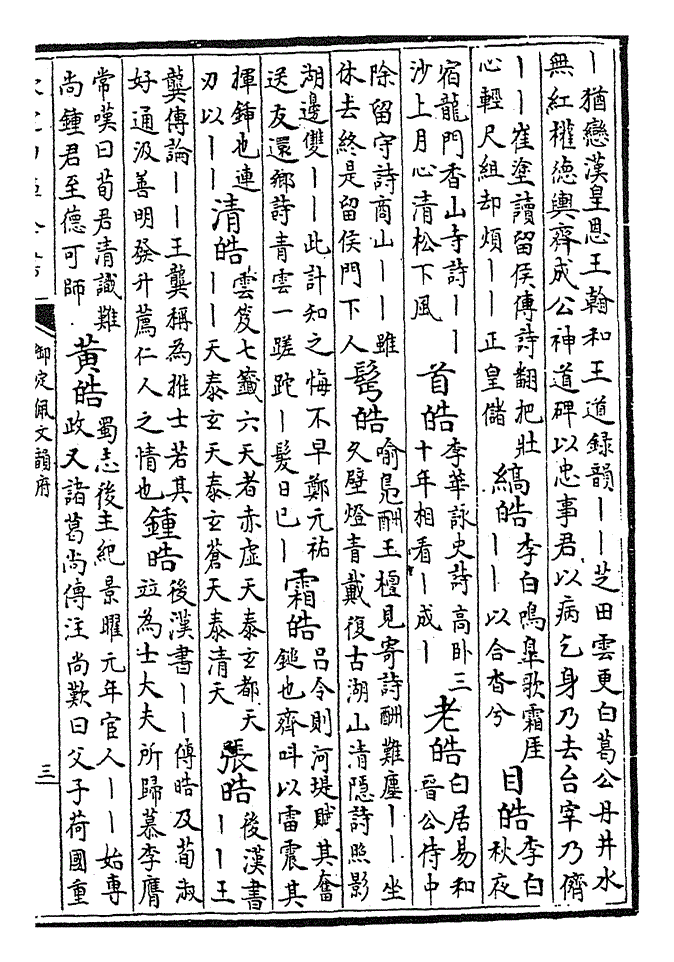 丨猶戀漢皇恩王翰和王道錄韻丨丨芝田雲更白葛公丹井水
無紅權德輿齊成公神道碑以忠事君以病乞身乃去台宰乃儕
丨丨崔塗讀留侯傳詩翻把壯
心輕尺組却煩丨丨正皇儲
縞皓
李白鳴臯歌霜厓
丨丨以合沓兮
目皓
李白
秋夜
宿龍門香山寺詩丨丨
沙上月心清松下風
首皓
李華詠史詩高卧三
十年相看丨成丨
老皓
白居易和
晉公侍中
除留守詩商山丨丨雖
休去終是留侯門下人
髩皓
喻鳧酬王檀見寄詩酬難塵丨丨坐
久壁燈青戴復古湖山清隱詩照影
湖邊雙丨丨此計知之悔不早鄭元祐
送友還鄉詩青雲一蹉跎丨髮日已丨
霜皓
呂令則河堤賦其奮
鎚也齊呌以雷震其
揮鍤也連
刃以丨丨
清皓
雲笈七籤六天者赤虛天泰玄都天
丨丨天泰玄天泰玄蒼天泰清天
張晧
後漢書
丨丨王
龔傳論丨丨王龔稱為推士若其
好通汲善明發升薦仁人之情也
鍾晧
後漢書丨丨傳晧及荀淑
並為士大夫所歸慕李膺
常嘆曰荀君清識難
尚鍾君至德可師
黃皓
蜀志後主紀景耀元年宦人丨丨始專
政又諸葛尚傳注尚歎曰父子荷國重
御定佩文韻府
三